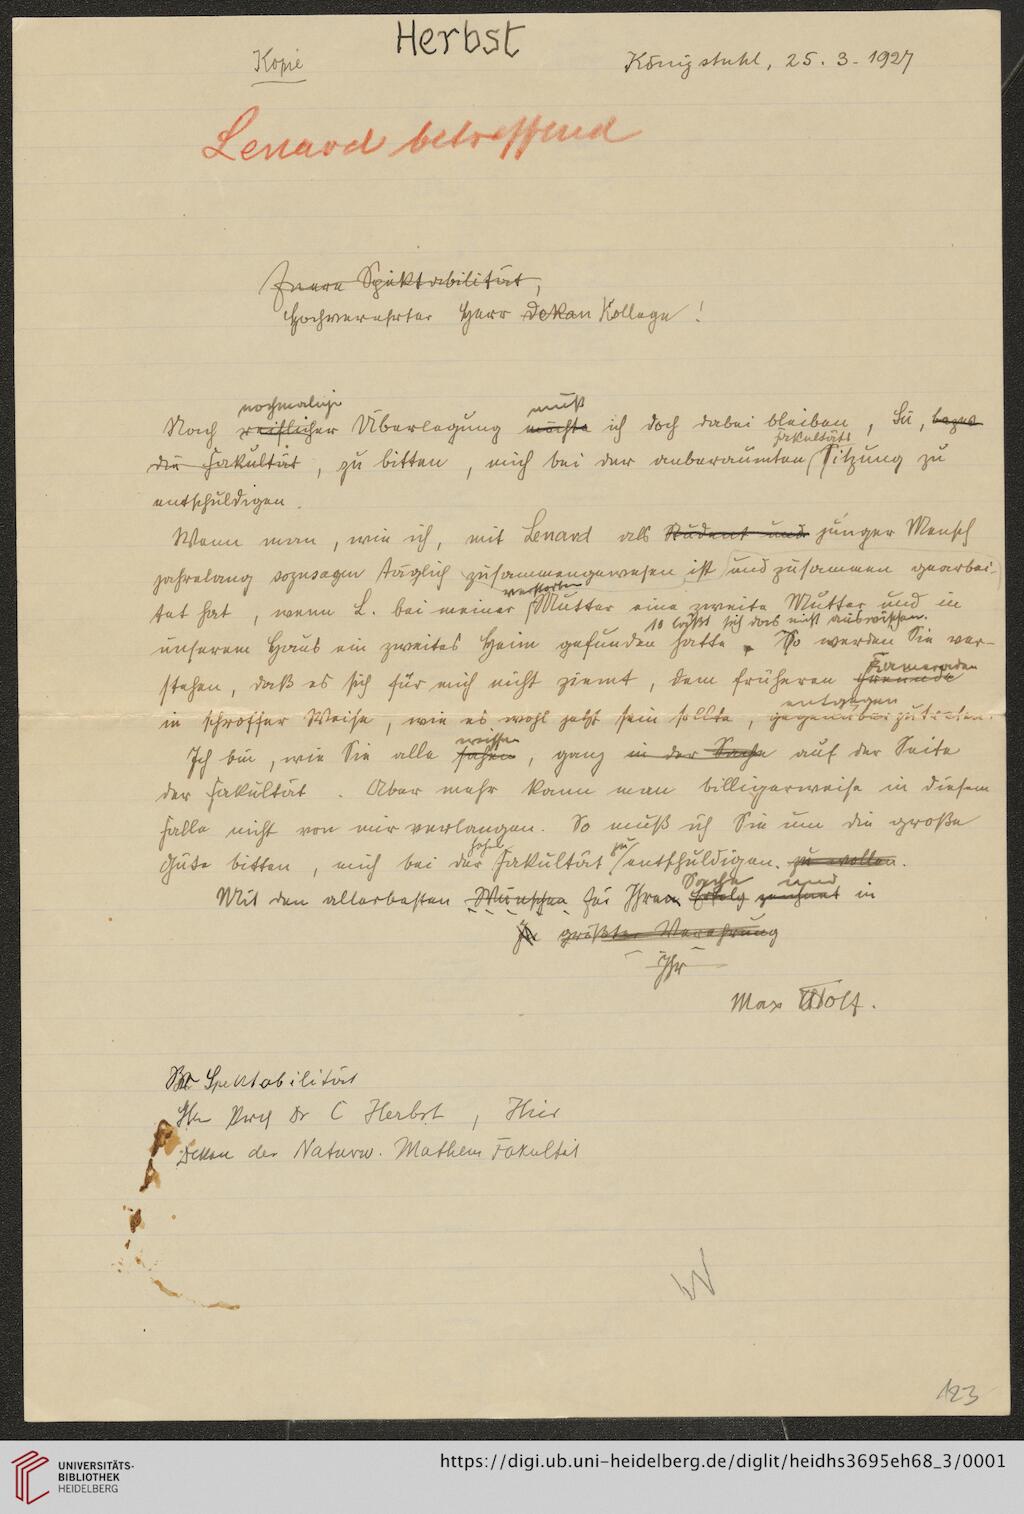 Herbst
Kopie
Königstuhl, 25. 3. 1927
Lenard betreffend
Euere Spektabilität,
Hochverehrter Herr Dekan Kollege!
nochmaliger muß
Nach reiflicher Überlegung möchte ich doch dabei bleiben, Sie, bezw
Fakultäts
die Fakultät, zu bitten, mich bei der anberaumten Sitzung zu
entschuldigen.
Wenn man, wie ich, mit Lenard als Student und junger Mensch
jahrelang sozusagen täglich zusammengewesen ist und zusammen gearbei-
verstorbenen
tet hat, wenn L. bei meiner Mutter eine zweite Mutter und in
so läßt sich das nicht auswischen.
unserem Haus ein zweites Heim gefunden hatte. So werden Sie ver-
Kameraden
stehen, daß es sich für mich nicht ziemt, dem früheren Freunde
entgegen
in schroffer Weise, wie es wohl jetzt sein sollte, gegenüber zu treten.
wissen
Ich bin, wie Sie alle sahen, ganz in der Sache auf der Seite
der Fakultät. Aber mehr kann man billigerweise in diesem
Falle nicht von mir verlangen. So muß ich Sie um die große
hohen zu
Güte bitten, mich bei der Fakultät entschuldigen. zu wollen.
Sache und
Mit den allerbesten Wünschen für Ihren Erfolg zeichnet in
größter Verehrung
Ihr
Max Wolf.
Sr Spektabilität
Hn Prof Dr C Herbst, Hier
Dekan der Naturw. Mathem Fakultät
W
123
UNIVERSITÄTS-
BIBLIOTHEK
HEIDELBERG
https://digi.ub.uni-heidelberg.de/diglit/heidhs3695eh68_3/0001